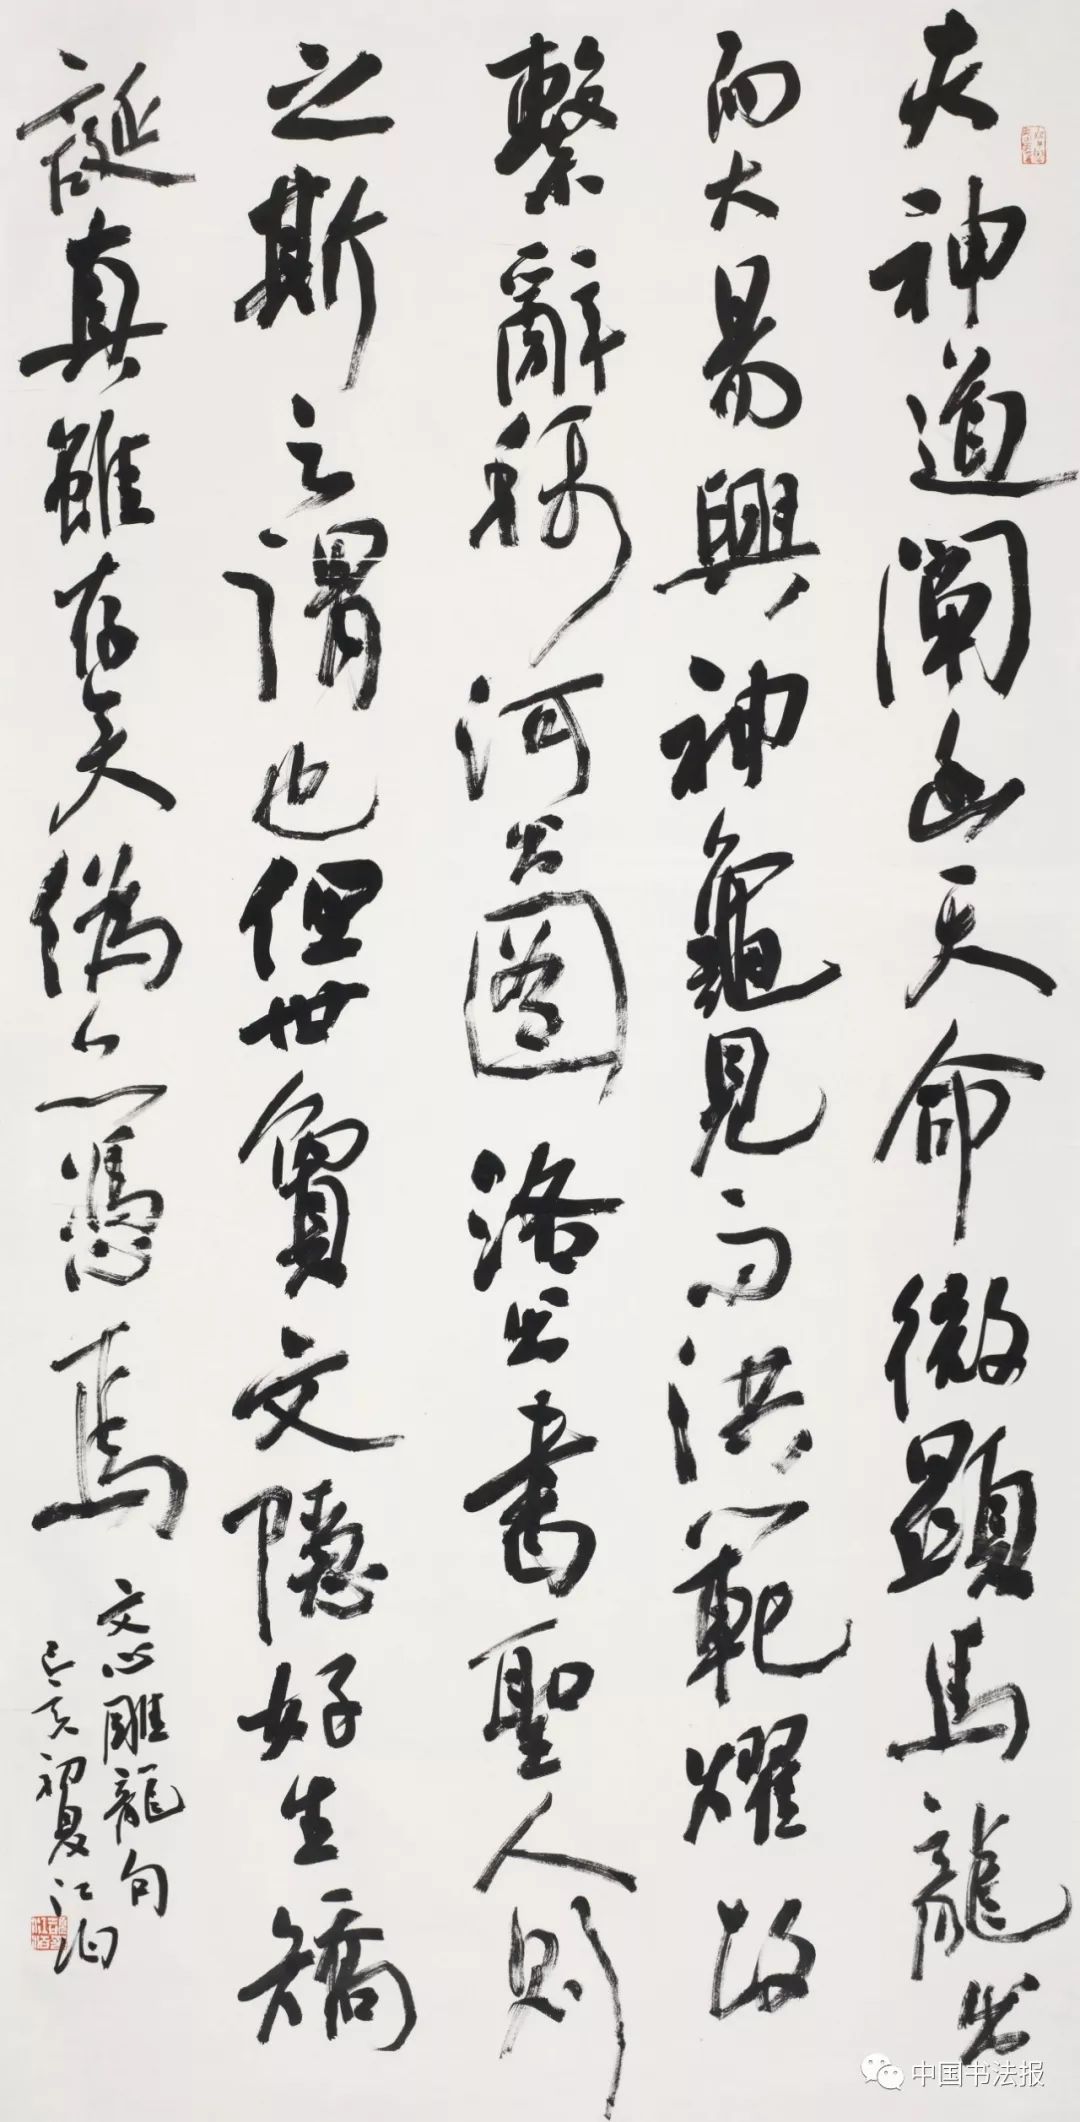 夫神道闡幽天命微顯馬龍出
而大易興神龜見而洪範耀故
繫辭稱河出圖洛出書聖人則
之斯之謂也但世夐文隱好生矯
誕真雖存矣偽亦憑焉
文心雕龍句
己亥初夏江泊
中国书法报